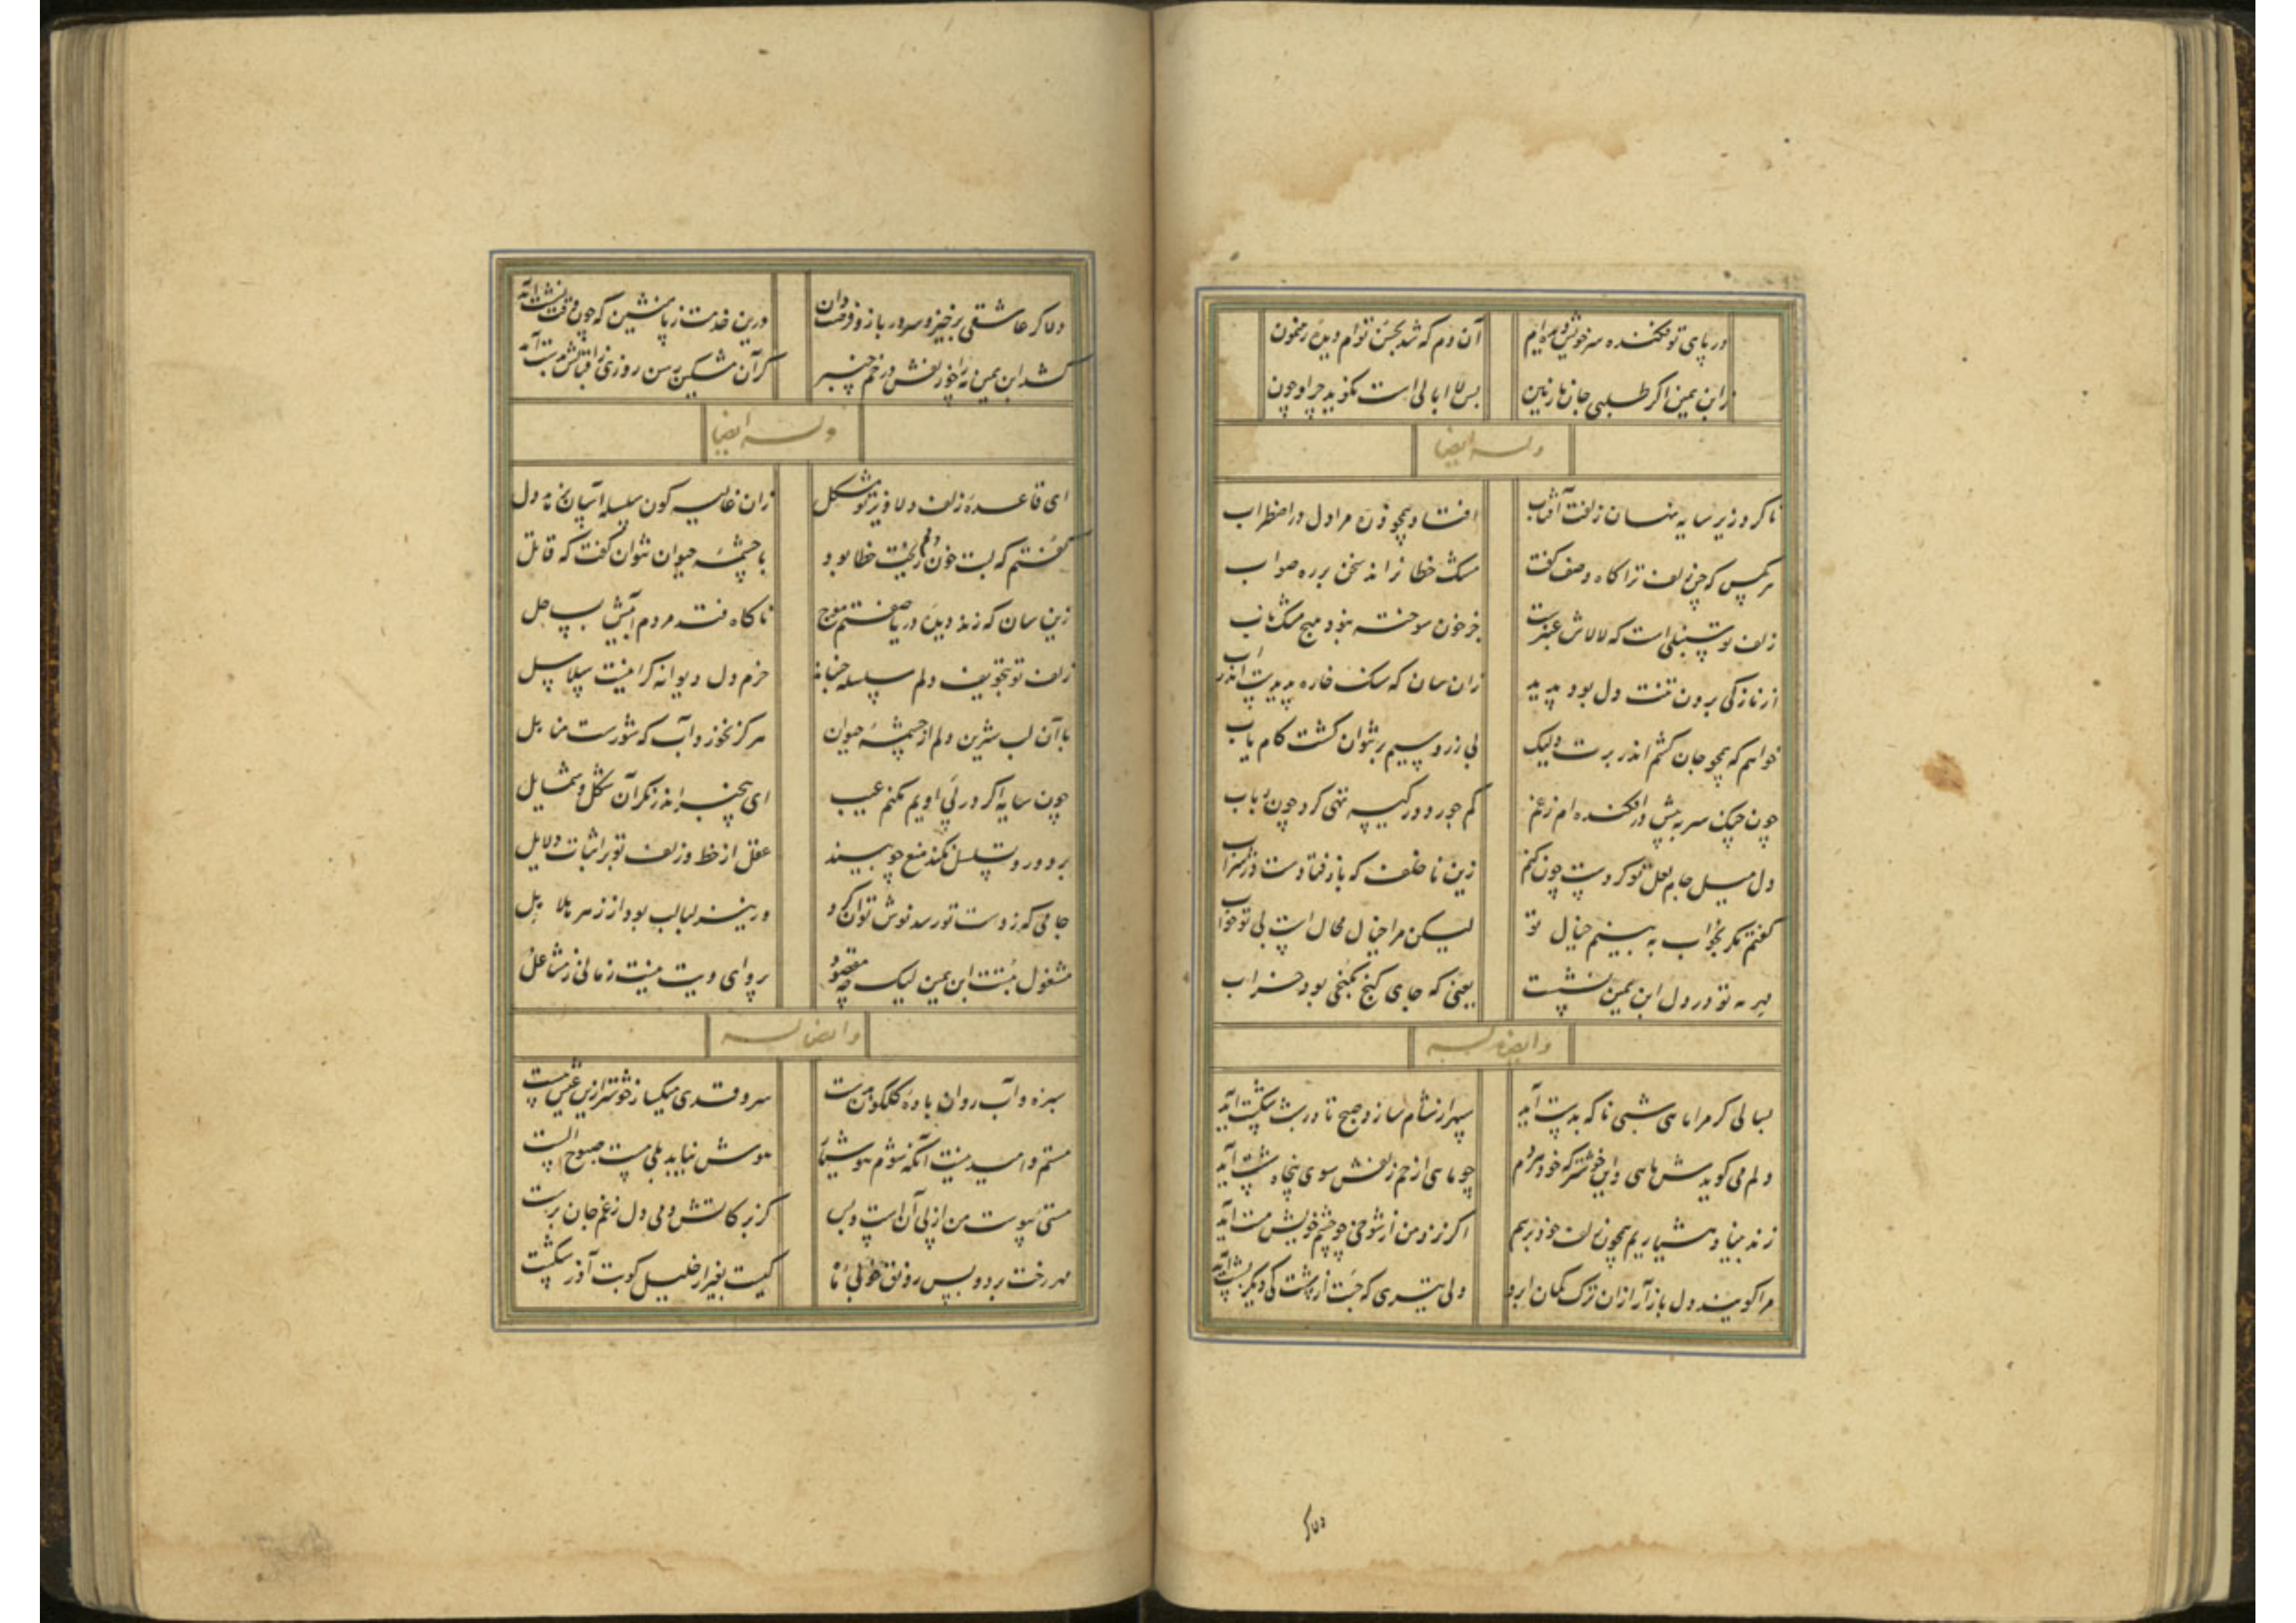 در پای تو فکنده سر خویش دیده‌ام آن دم که شد بحسن توام دیده رهنمون
ز ابن یمین اگر طلبی جان نازنین بس لا ابالی است نگوید چرا و چون
وله ایضا
تا کرد زیر سایه نهان زلفت آفتاب افتاد همچو ذره مرا دل در اضطراب
هر کس که چین زلف ترا گاه وصف گفت مشک خطا نراند سخن بر ره صواب
زلف تو سنبلی است که لالاش عنبرست جز خون سوخته نبود هیچ مشک ناب
از نازکی برون تنت دل بود پدید زان سان که سنگ خاره پدیدست اندر آب
خواهم که همچو جان کشم اندر برت ولیک بی زر و سیم بر نتوان گشت کام یاب
چون چنگ سر به پیش درافکنده‌ام ز غم کم جور دور کیسه تهی کرد چون رباب
دل میل جام لعل تو کردست چون کنم زین نا خلف که باز فتادست در شراب
گفتم مگر بخواب به بینم خیال تو لیکن مرا خیال محال است بی تو خواب
مهر تو در دل ابن یمین نشست یعنی که جای گنج بکنجی بود خراب
وایضا له
بسالی گر مرا ماهی شبی ناگه بدست آید سپهر از شام سازد صبح تا در شب شکست آید
دلم می گویدش ماهی و این خوشتر که خود مردم چو ماهی از خم زلفش سوی پنجاه شست آید
زند بینا و هشیاریم همچون زلف خود برهم اگر نزد من از شوخی چو چشم خویش مست آید
مرا گویند دل باز آر ازان ترک کمان ابرو ولی تیری که جست از شست کی دیگر بشست آید
دلا گر
دلا گر عاشقی برخیز و سر در باز و فرصت دان درین خدمت ز پا منشین که چون وقت نشست آید
کشد ابن یمین مه را چو زلفش در خم چنبر گر آن مشکین رسن روزی ز اقبالش بدست آید
وله ایضا
ای قاعده زلف دلاویز تو مشکل زان غالیه گون سلسله آسان نجهد دل
گفتم که لبت خون دلم ریخت خطا بود با چشمه حیوان نتوان گفت که قاتل
زین سان که زند دیده دریا صفتم موج ناگاه فتد مردم آبیش بساحل
زلف تو بتخویف دلم سلسله جنباند خرم دل دیوانه گر اینست سلاسل
با آن لب شیرین دلم از چشمه حیوان هرگز نخورد آب که شورست مناهل
چون سایه اگر در پی اویم مکنم عیب ای بیخبر اندر نگر آن شکل و شمایل
بر دور و تسلسل نکند منع چو بیند عقل از خط و زلف تو بر اثبات دلایل
جامی که ز دست تو رسد نوش توان کرد ور نیز لبالب بود از زهر هلاهل
مشغول بتست ابن یمین لیک چه مقصود پروای ویت نیست زمانی ز مشاغل
وایضا له
سبزه و آب روان باده گلگون بدست سرو قدی میگسار خوشتر ازین عیش هست
مستم و امید نیست آنکه شوم هوشیار هوش نیاید بلی مست صبوح الست
مستی پیوست من از پی آن است و بس کز برکاتش دمی دل ز غم جان برست
مه رخت برد و بس رونق خوبی ما کیست بغیر از خلیل کو بت آذر شکست